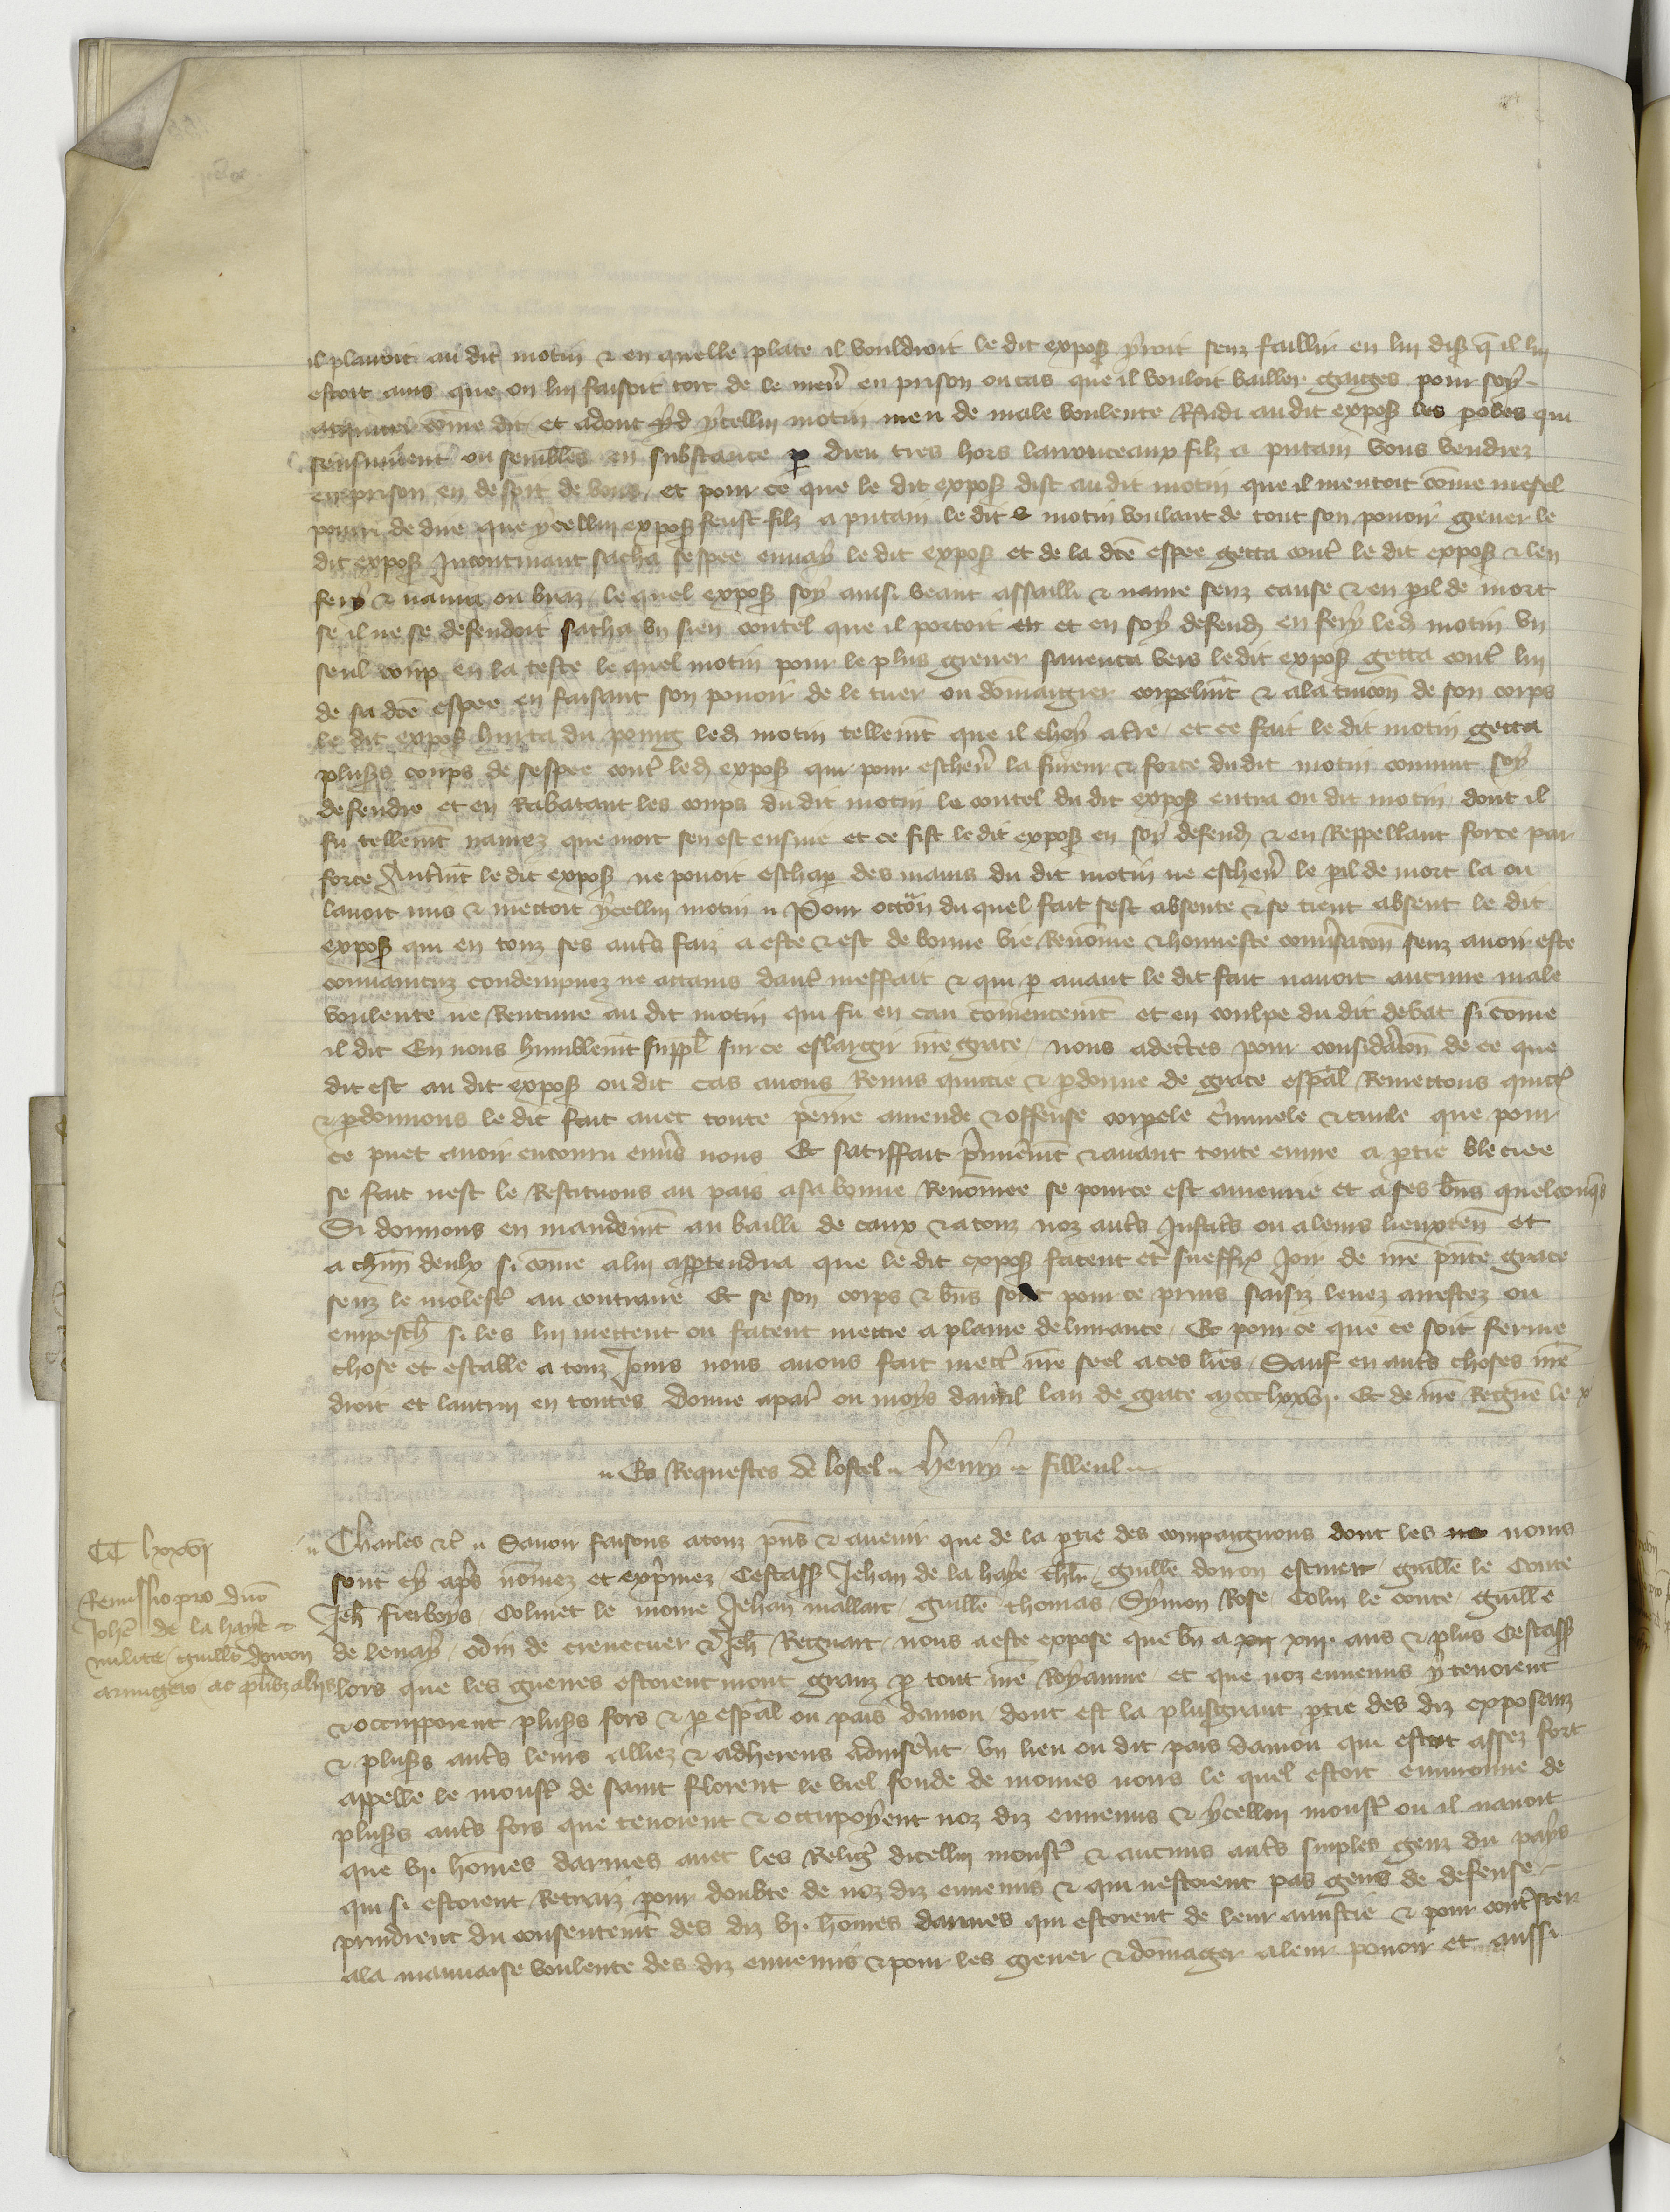 il plairoit au dit motin & en quelle place il vouldroit le dit expos yroit senz faillir en lui dis q̄ il lui
estoit auis que on lui faisoit tort de le men̄ en prison ou cas que il vouloit bailler gaiges pour soy
com̄e dit et adont ycellui motin meu de male voulente Rn̄di au dit expos les poles qui
senssuiuent ou semblēs en substance p dieu tres hors larronceaux filz a putain vous vendrez
en prison en despit de vous, et pour ce que le dit expos dist au dit motin que il mentoit com̄e mesel
pourri de dire que ycellui expos feust filz a putain le dit motin voulant de tout son pouoir greuer le
dit expos Incontinant sacha sespee enuay le dit expos et de la dc̄e espee getta cont̄ le dit expos & len
fery & naura ou braz, le quel expos soy ainsi veant assailli & naure senz cause & en pil de mort
se il ne se defendoit sacha vn sien coutel que il portoit et en soy defend en fery led motin vn
seul coup en la teste le quel motin pour le plus greuer sauenca vers le dit expos getta cont̄ lui
de sa dc̄e espee en faisant son pouoir de le tuer ou dom̄aigier corpelmt̄ & a la tuicōn de son corps
le dit expos hurta du poing led motin tellemt̄ que il chey a tr̄e, et ce fait le dit motin getta
plusˢ coups de sespee cont̄ led expos qui pour escheu̅ la fureur & force du dit motin conuint soy
defendre et en Rabatant les coups du dit motin le coutel du dit expos entra ou dit motin dont il
fu tellemt̄ naurez que mort sen est ensuie et ce fist le dit expos en soy defend & en Reppellant force par
force Autremt̄ le dit expos ne pouoit eschap des mains du dit motin ne escheu̅ le pil de mort la ou
lauoit mis & mettoit ycellui motin Pour occōn du quel fait sest absente & se tient absent le dit
expos qui en touz ses aut̄s faiz a este & est de bonne vie Renōme & honneste conu̅sacōn senz auoir este
conuaincuz condempnez ne actains daut̄ meffait & qui p auant le dit fait nauoit aucune male
voulente ne Rencune au dit motin qui fu en cau com̄encemt̄ et en coulpe du dit debat si com̄e
il dit En nous humblemt̄ suppl̄ sur ce eslargir nr̄e grace, nous adecertes pour consid̄acōn de ce que
dit est au dit expos ou dit cas auons Remis quictie & pdonne de grace esp̄al Remettons quict̄
& pdonnons le dit fait auec toute peine amende & offense corpele c̄iminele & ciuile que pour
ce puet auoir encouru enu̅s nous Et satiffait p̄mierem̄t & auant toute euure a ptie bleciee
se fait nest le Restituons au pais a sa bonne Renōmee se pour ce est amenrie et a ses bn̄s quelconqs
Si donnons en mandemt̄ au bailli de caux & a touz noz aut̄s Justic̄s ou a leurs lieuxten̄ et
a chūn deulx si com̄e a lui appartendra que le dit expos facent et sueffr̄ Joir de nr̄e pn̄te grace
senz le molest̄ au contraire Et se son corps & bn̄s sont pour ce prins saisiz leuez arrestez ou
empesch̄ si les lui mettent ou facent mettre a plaine deliurance, Et pour ce que ce soit ferme
chose et estable a touz Jours nous auons fait mect̄ nr̄e seel a ces lr̄es, Sauf en aut̄s choses nr̄e
droit et lautrui en toutes Donne a par̄ ou moys dauril lan de grace mccclxxvi. Et de nr̄e Regne le x
Es Requestes de lostel Henry filleul
CC lxxvi
Remissio pro dn̄o
Joh̄e de la haye
milite, guill̄o doiron
armigero ac pl̄ibz aliis
Charles &c̄ Sauoir faisons a touz pn̄s & auenir que de la ptie des compaignons dont les noms
sont cy ap̄s nom̄ez et exp̄imez, Cestass̄ Jehan de la haye chl̄r, guill̄e doiron escuier, guill̄e le Conte
Jeh̄ fierboys, Colinet le moine Jehan mallart, guill̄e thomas, Symon Rose, Colin le conte, guill̄e
de lenay, odin de creuecuer & Jeh̄ Regnart, nous a este expose que bn̄ a xiii. ans & plus Cestass̄
lors que les guerres estoient mont granz p tout nr̄e Royaume, et que noz ennemis y tenoient
& occuppoient plusˢ fors & p esp̄al ou pais daniou dont est la plusgrant ptie des diz expposanz
& plusˢ aut̄s leurs alliez & adherens aduiserēnt vn lieu ou dit pais daniou qui estoit assez fort
appelle le moust̄ de saint florent le viel fonde de moines noirs le quel estoit enuironne de
plusˢ aut̄s fors que tenoient & occupoyent noz diz ennemis & ycellui moust̄ ou il nauoit
que vj. hom̄es darmes auec les Religˢ dicellui moust̄ & aucuns aut̄s simples genz du pays
qui si estoient Retraiz pour doubte de noz diz ennemis & qui nestoient pas gens de defense
prindrent du consentemt̄ des diz vj. hom̄es darmes qui estoient de leur amistie & pour contr̄ster
a la mauuaise voulente des diz ennemis & pour les greuer & dom̄ager a leur pouoir et aussi